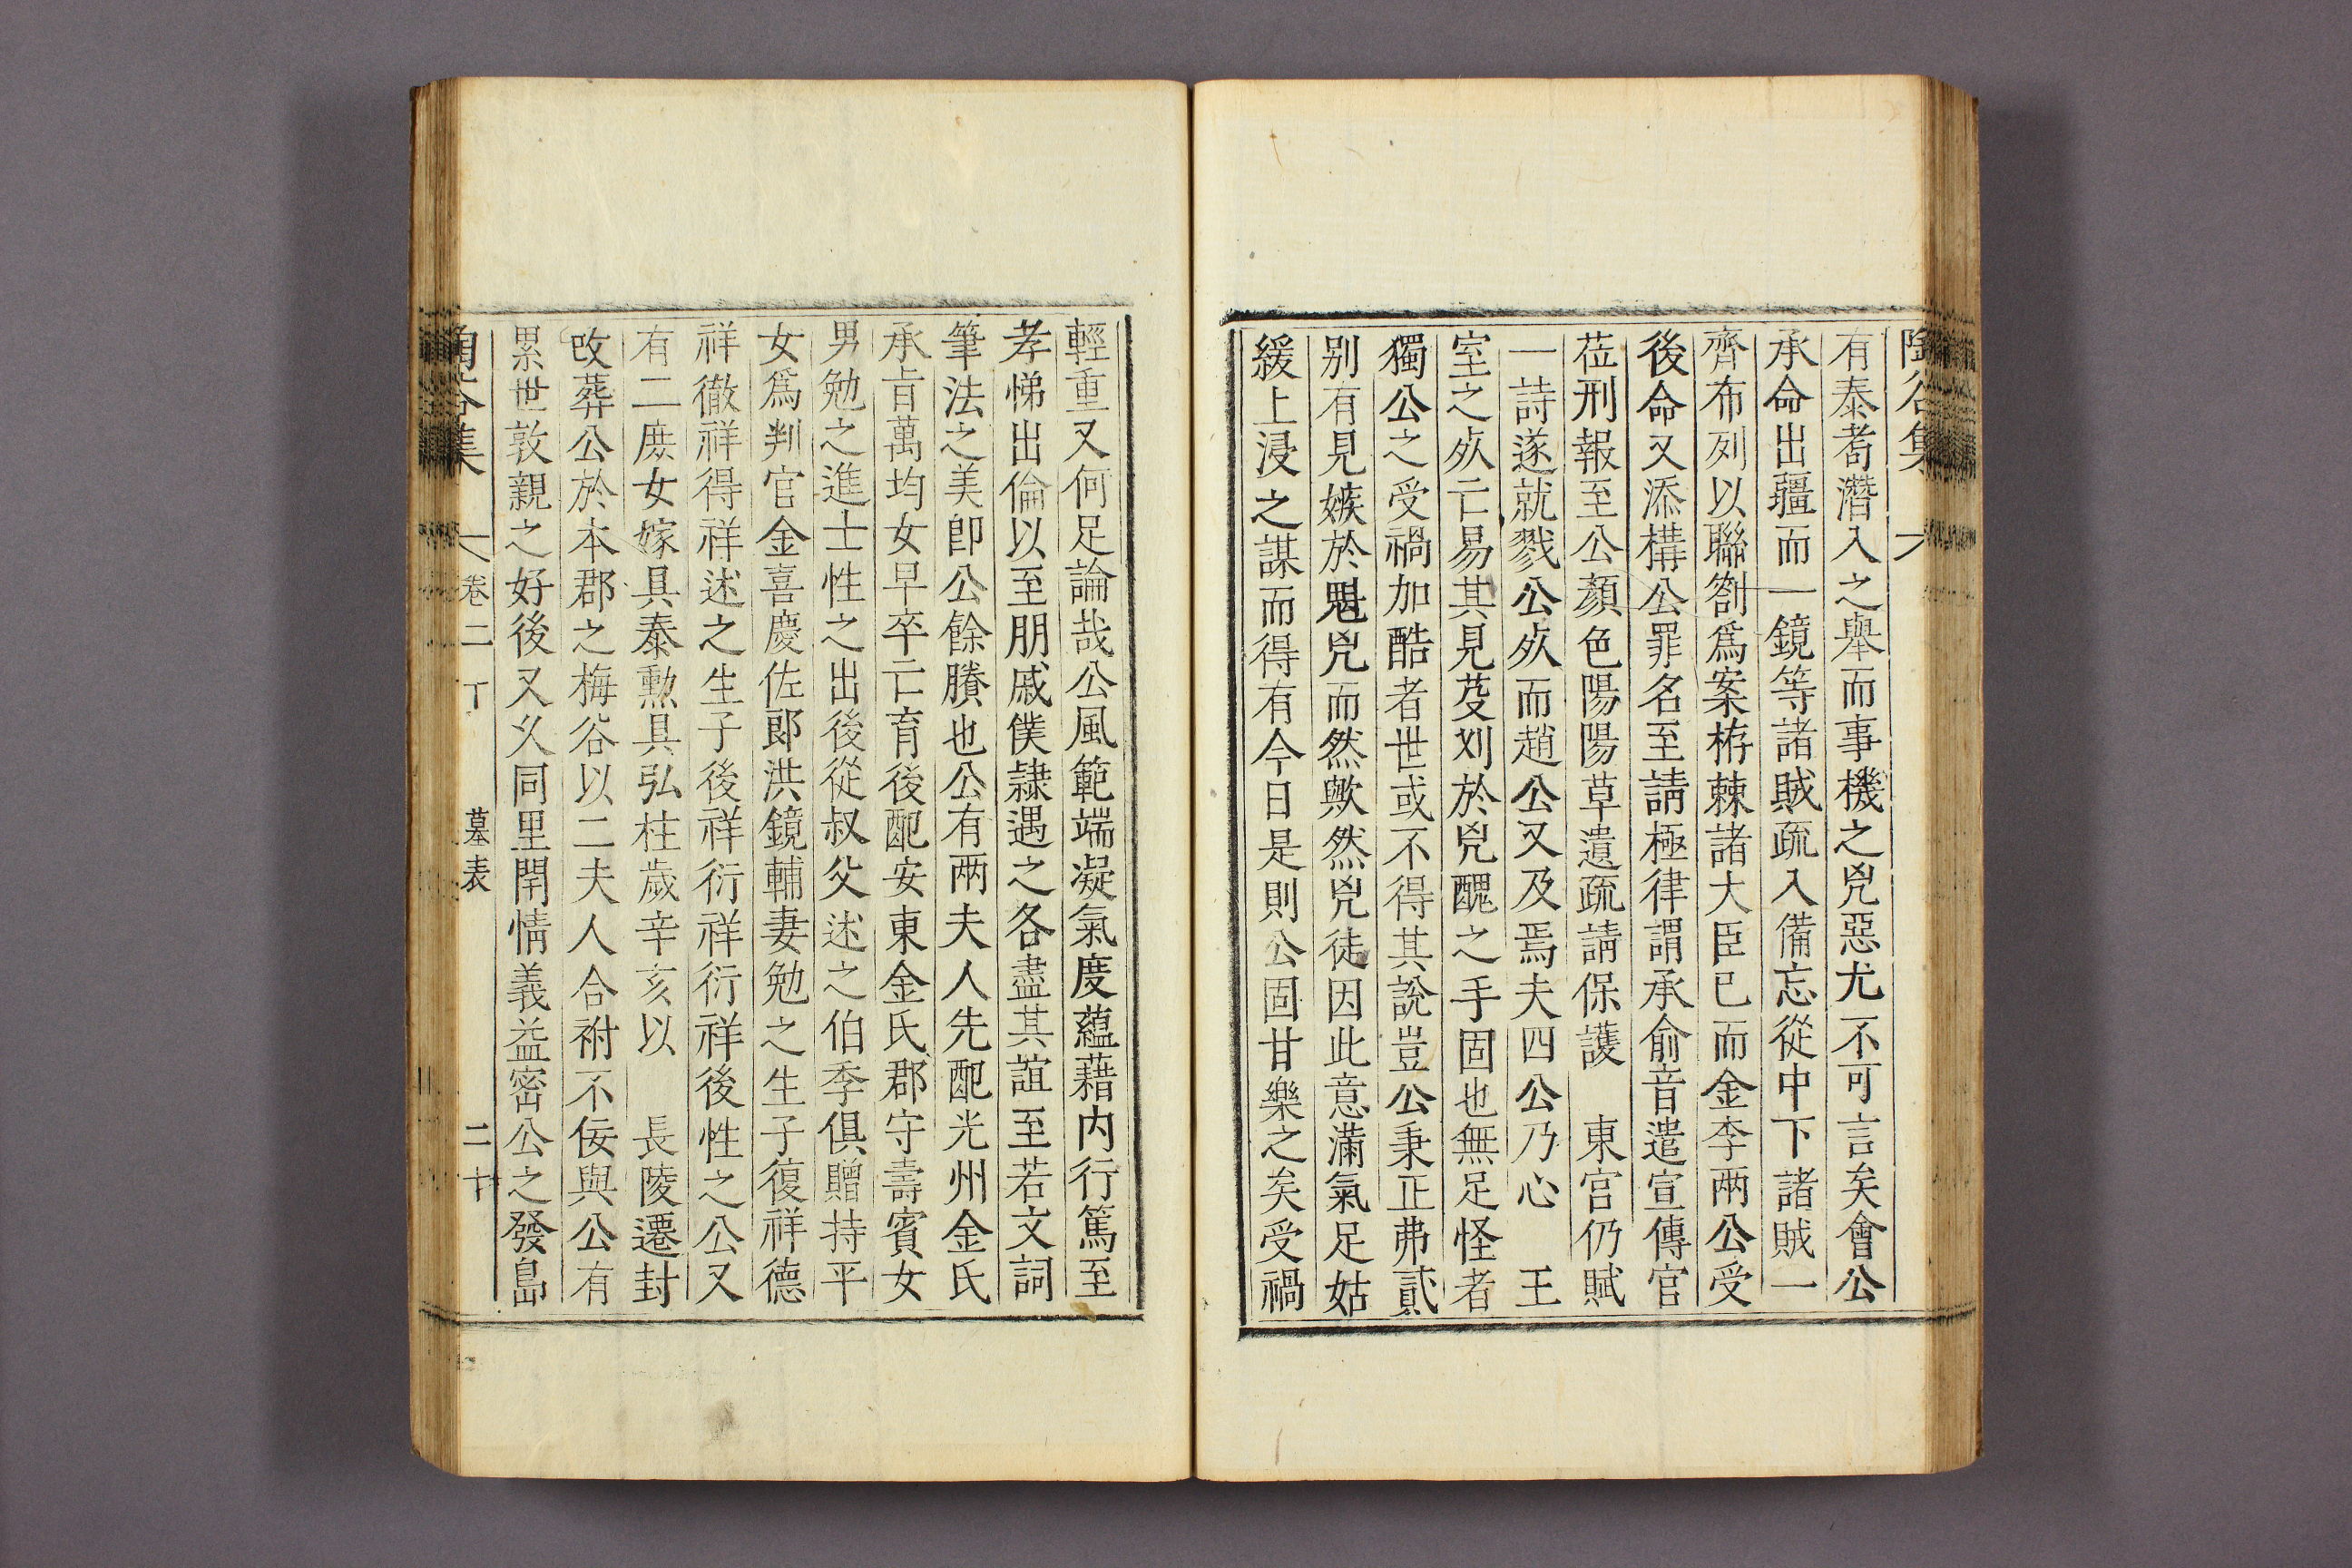 陶谷集
有泰耈潛入之舉而事機之兇惡尤不可言矣會公
承命出疆而一鏡等諸賊疏入備忘從中下諸賊一
齊布列以聯劄爲案栫棘諸大臣已而金李兩公受
後命又添構公罪名至請極律謂承俞音遣宣傳官
莅刑報至公顏色陽陽草遺疏請保護 東宮仍賦
一詩遂就戮公歿而趙公又及焉夫四公乃心 王
室之歿亡易其見芟刈於兇醜之手固也無足怪者
獨公之受禍加酷者世或不得其說豈公秉正弗貳
別有見嫉於鬼兇而然歟然兇徒因此意滿氣足姑
緩上浸之謀而得有今日是則公固甘樂之矣受禍
輕重又何足論哉公風範端凝氣度蘊藉内行篤至
孝悌出倫以至朋戚僕隷遇之各盡其誼至若文詞
筆法之美卽公餘賸也公有兩夫人先配光州金氏
承旨萬均女早卒亡育後配安東金氏郡守壽賓女
男勉之進士性之出後從叔父述之伯季俱贈持平
女爲判官金喜慶佐郞洪鏡輔妻勉之生子復祥德
祥徹祥得祥述之生子後祥衍祥衍祥後性之公又
有二庶女嫁具泰勲具弘柱歲辛亥以 長陵遷封
改葬公於本郡之梅谷以二夫人合祔不佞與公有
累世敦親之好後又久同里閈情義益密公之發島
陶谷集 卷二丁 墓表 二十